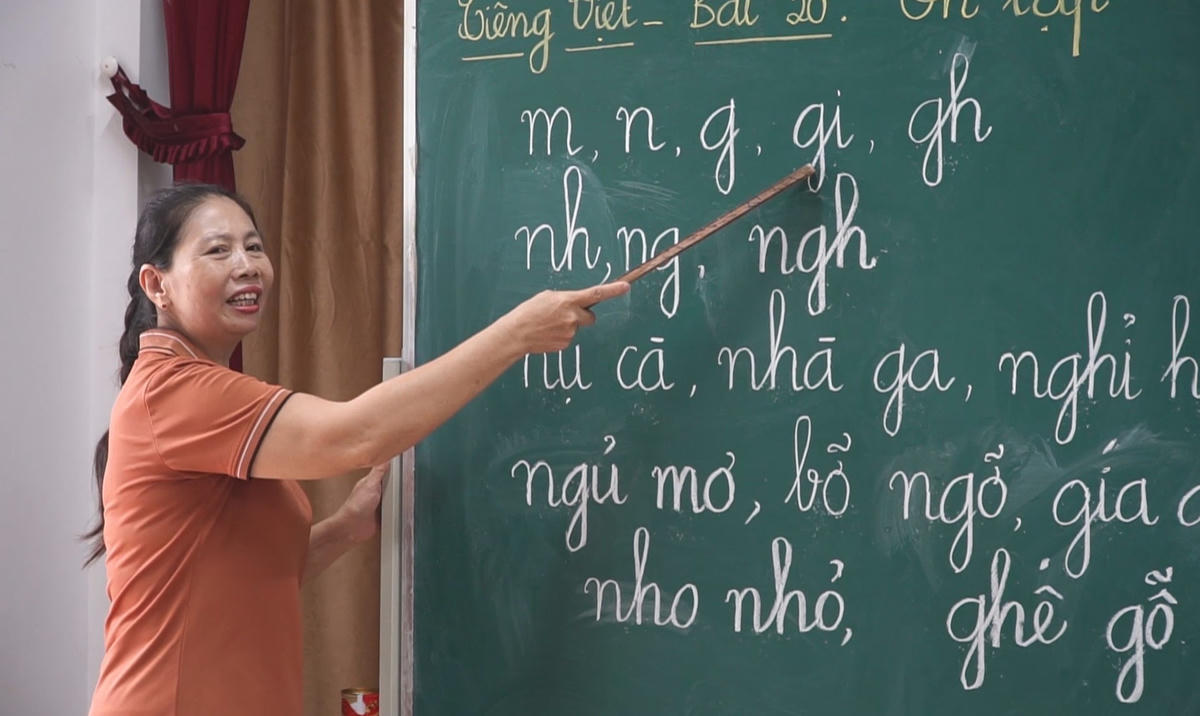 Tiếng Việt - Bài 20. Ôn tập
m, n, g, gi, gh
nh, ng, ngh
nụ cà, nhà ga, nghỉ
ngủ mơ, bỡ ngỡ, giá
nho nhỏ, ghế gỗ